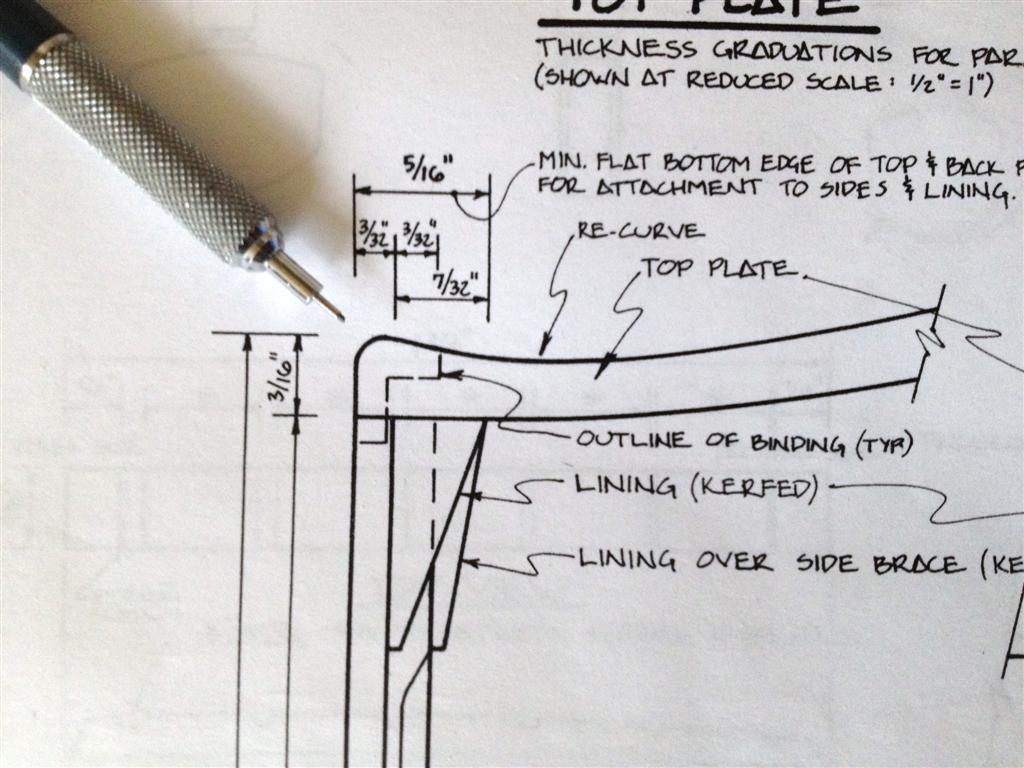 TOP PLATE
THICKNESS GRADUATIONS FOR PAR
(SHOWN AT REDUCED SCALE: 1/2" = 1")
5/16"
MIN. FLAT BOTTOM EDGE OF TOP & BACK P
FOR ATTACHMENT TO SIDES & LINING.
3/32" 3/32"
RE-CURVE
TOP PLATE
7/32"
3/16"
OUTLINE OF BINDING (TYP)
LINING (KERFED)
LINING OVER SIDE BRACE (KE